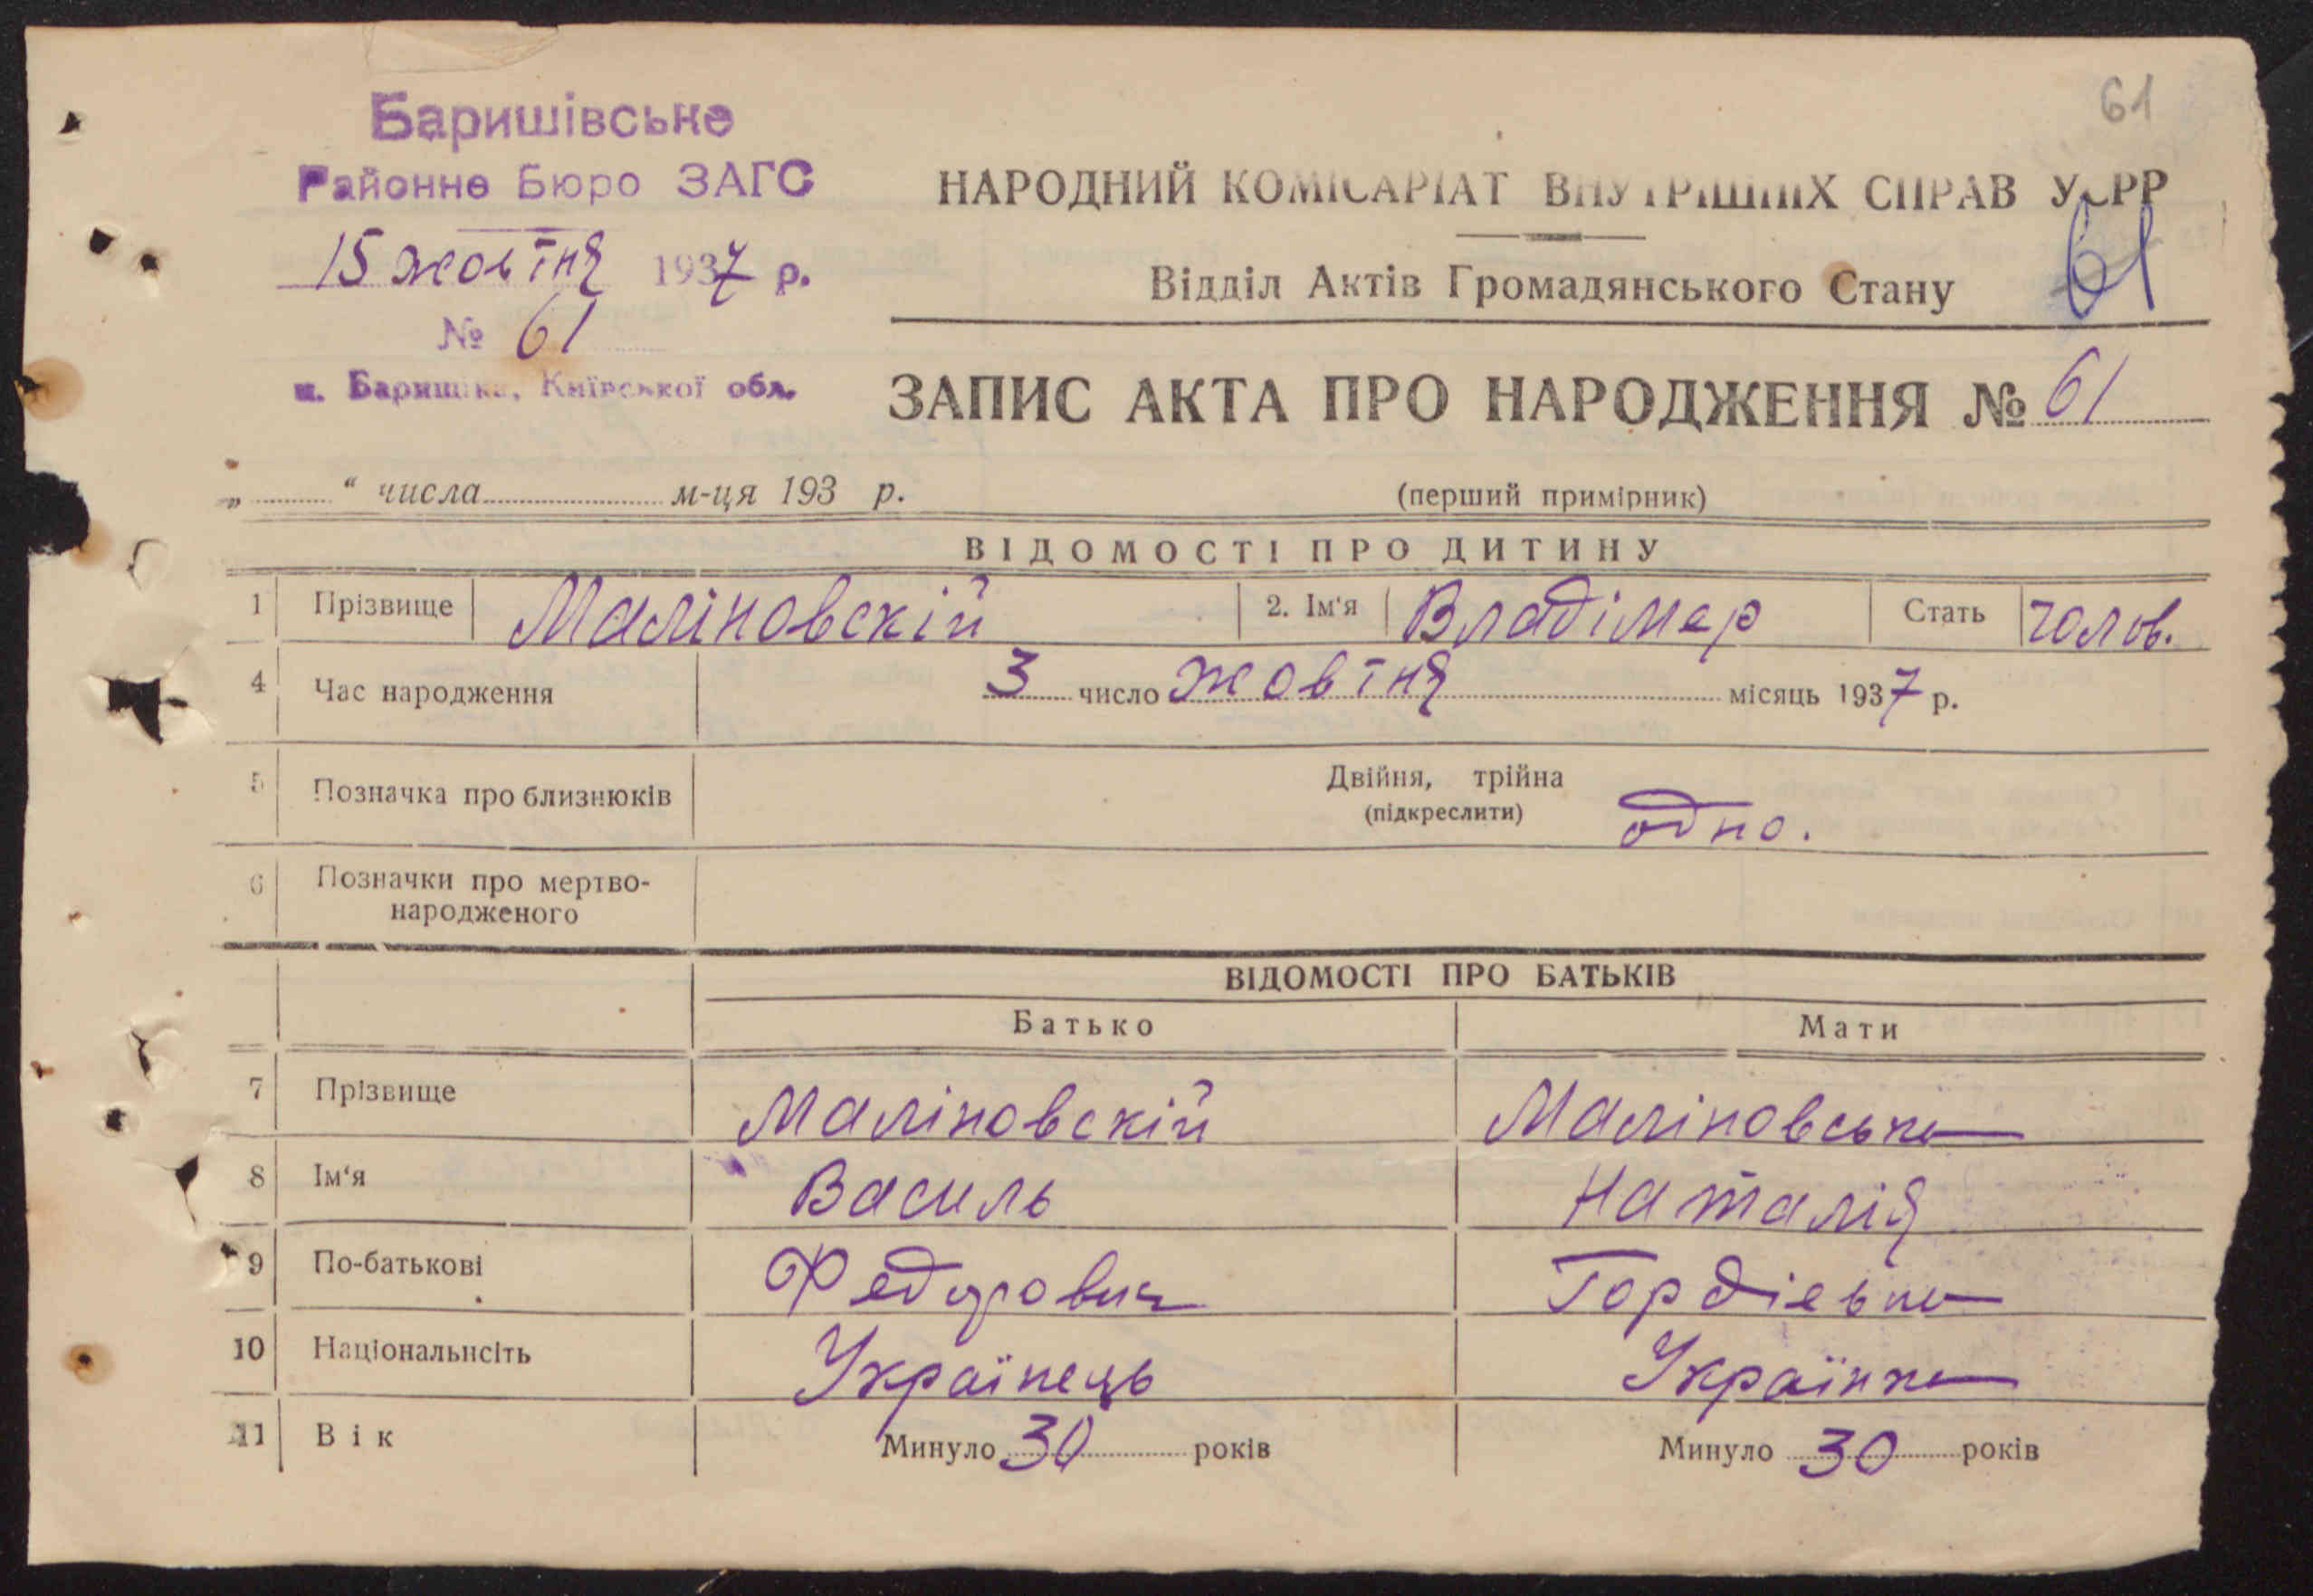 61
Баришівське
Районне Бюро ЗАГС
15 жовтня 1937 р.
№ 61
м. Баришівка, Київської обл.
НАРОДНИЙ КОМІСАРІАТ ВНУТРІШНІХ СПРАВ УСРР
Відділ Актів Громадянського Стану
61
ЗАПИС АКТА ПРО НАРОДЖЕННЯ № 61
„ “ числа м-ця 193 р.
(перший примірник)
ВІДОМОСТІ ПРО ДИТИНУ
1 Прізвище Маліновскій 2. Ім‘я Владімер Стать чолов.
4 Час народження 3 число жовтня місяць 1937 р.
5 Позначка про близнюків Двійня, трійна
(підкреслити) одно.
6 Позначки про мертво-
народженого
ВІДОМОСТІ ПРО БАТЬКІВ
Батько Мати
7 Прізвище Маліновскій Маліновська
8 Ім‘я Василь Наталія
9 По-батькові Федорович Гордієвна
10 Національнсіть Українець Українка
11 Вік Минуло 30 років Минуло 30 років